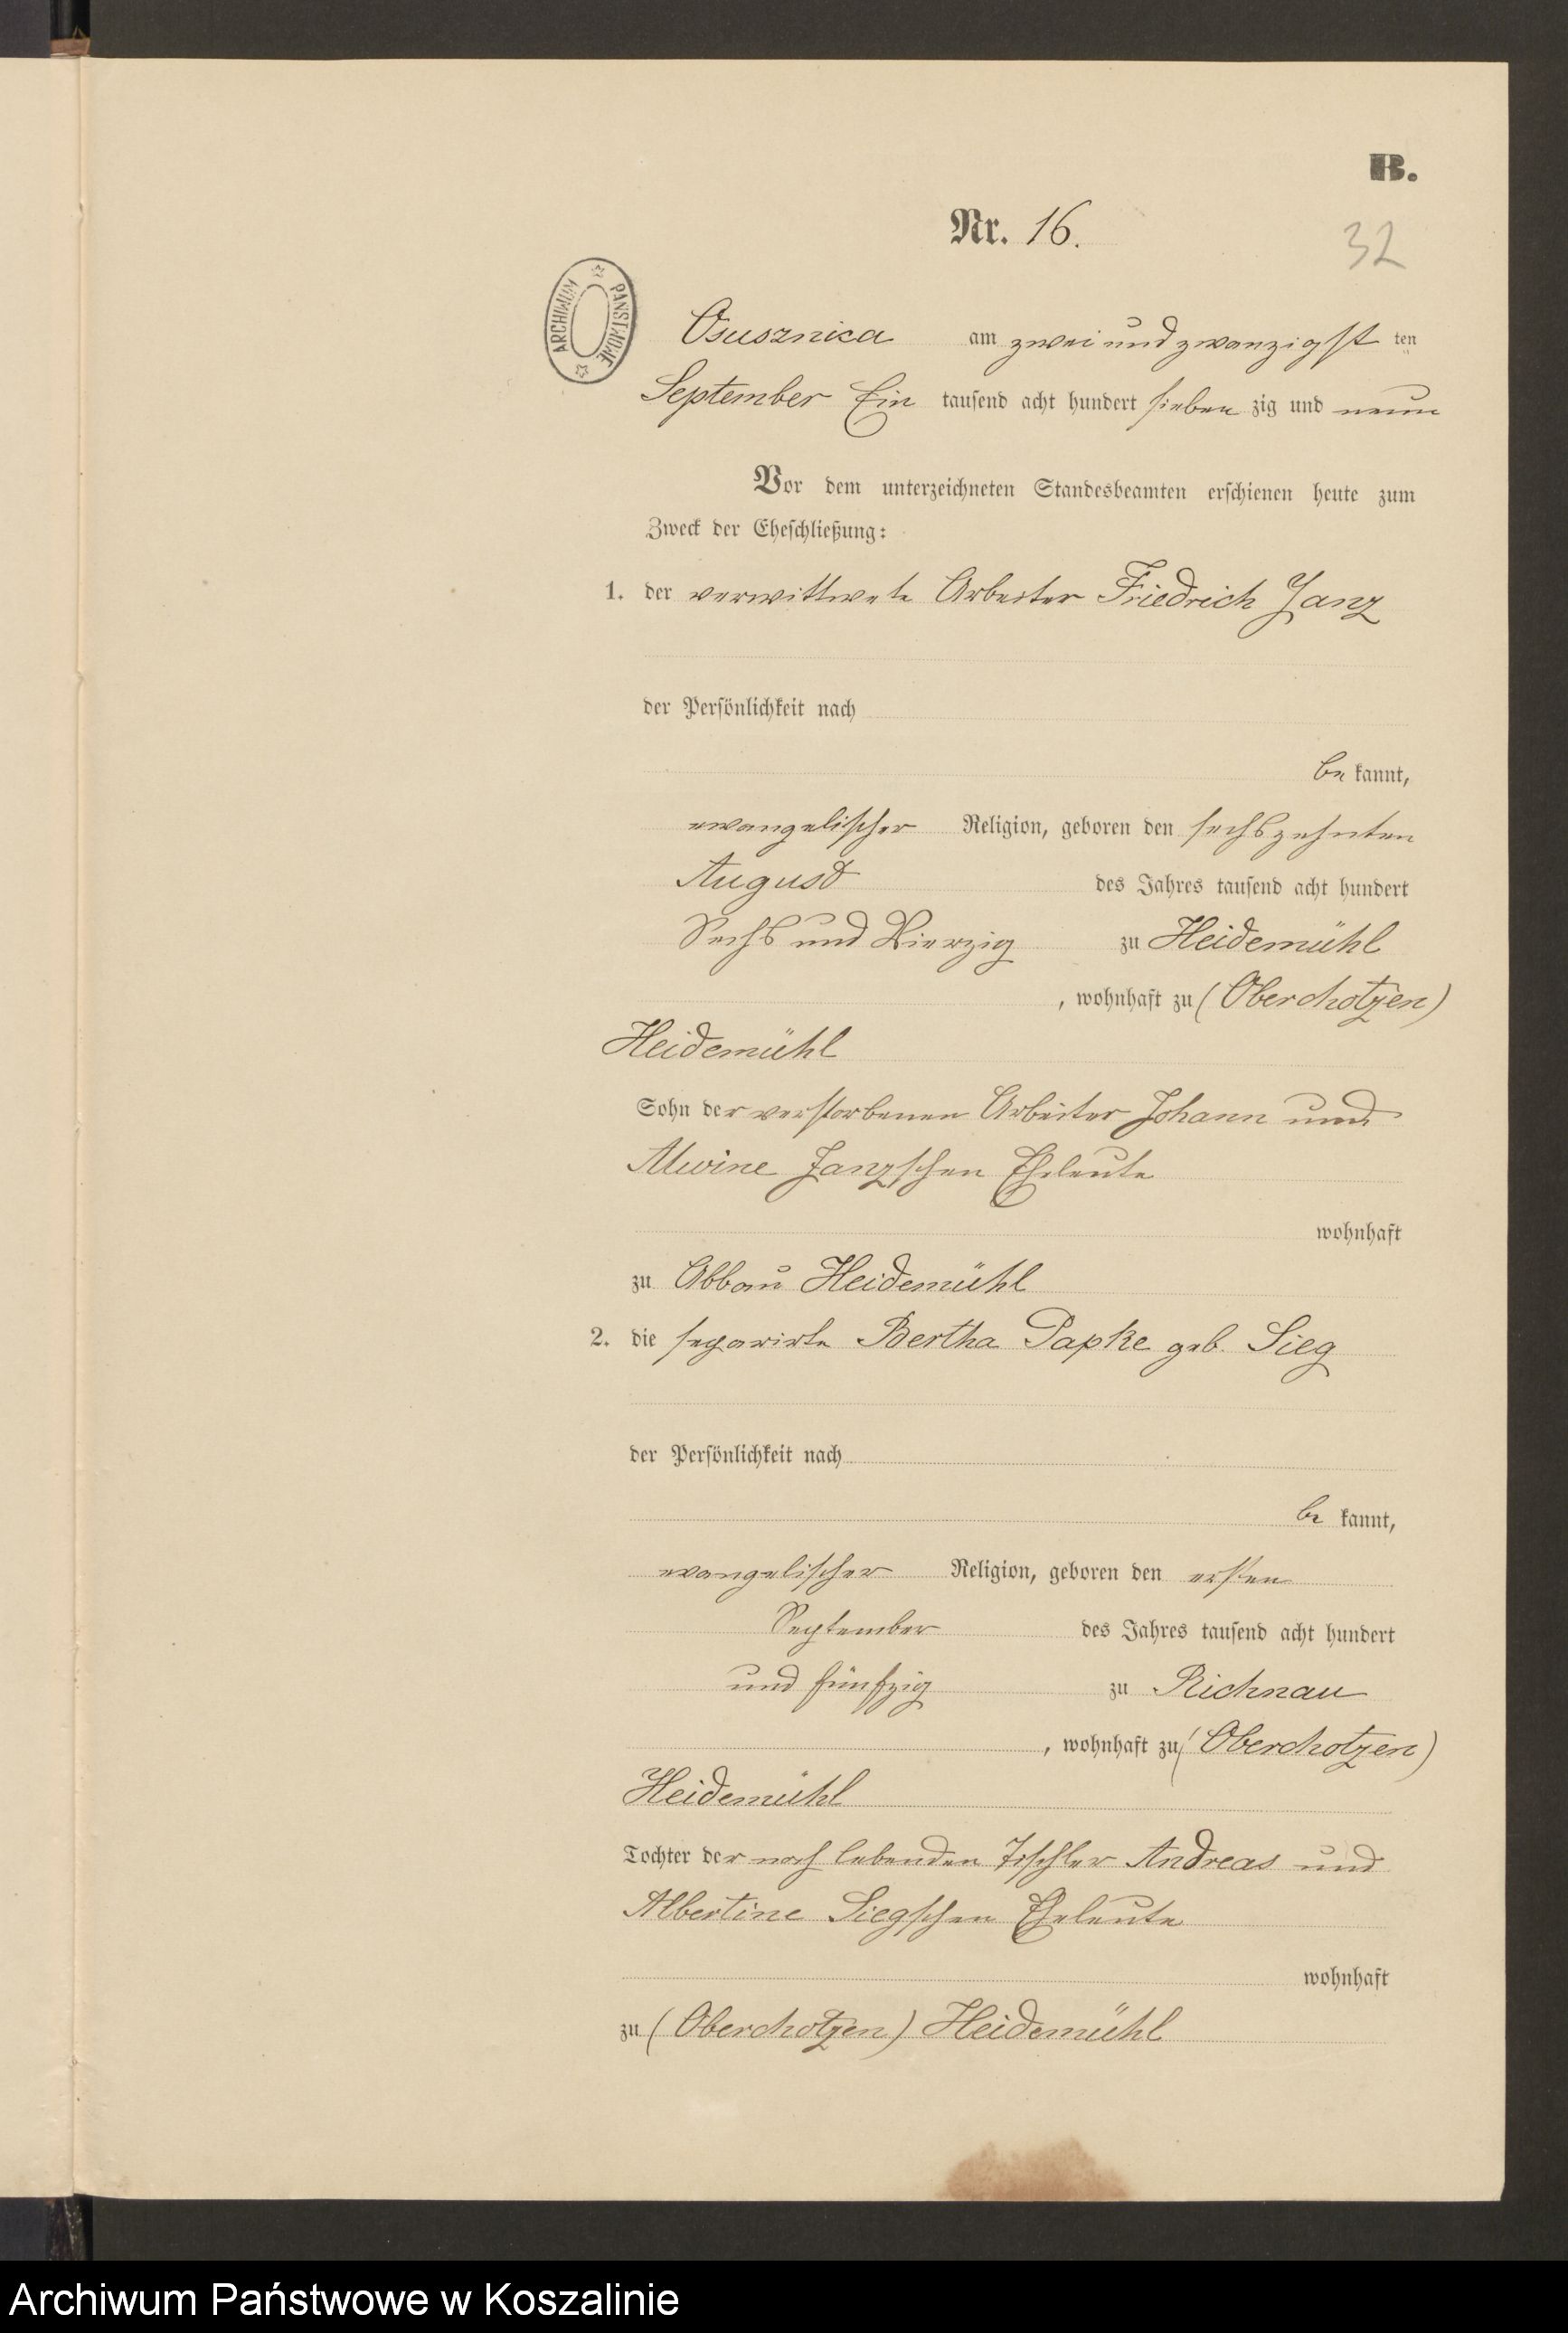 B.
Nr. 16.
32
ARCHIWUM PAŃSTWOWE
Osusznica am zwei und zwanzigst ten
September Ein tausend acht hundert sieben zig und neun
Vor dem unterzeichneten Standesbeamten erschienen heute zum
Zweck der Eheschließung:
1. der verwittwete Arbeiter Friedrich Janz
der Persönlichkeit nach
be kannt,
evangelischer Religion, geboren den sechszehnten
August des Jahres tausend acht hundert
Sechs und Vierzig zu Heidemühl
, wohnhaft zu (Oberchotzen)
Heidemühl
Sohn der verstorbenen Arbeiter Johann und
Alwine Janzschen Eheleute
wohnhaft
zu Abbau Heidemühl
2. die separirte Bertha Papke geb. Sieg
der Persönlichkeit nach
be kannt,
evangelischer Religion, geboren den ersten
September des Jahres tausend acht hundert
und fünfzig zu Richnau
, wohnhaft zu (Oberchotzen)
Heidemühl
Tochter der noch lebenden Tischler Andreas und
Albertine Siegschen Eheleute
wohnhaft
zu (Oberchotzen) Heidemühl
Archiwum Państwowe w Koszalinie